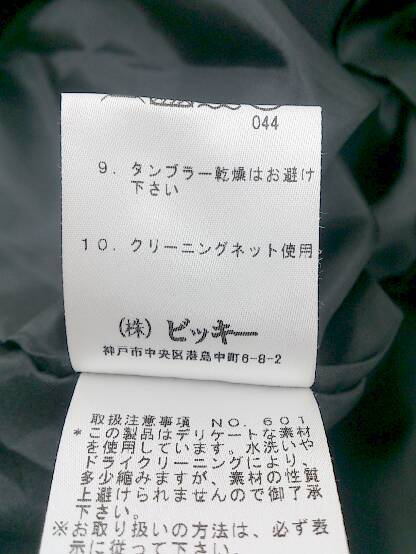 044
9. タンブラー乾燥はお避け
下さい
10. クリーニングネット使用
(株) ビッキー
神戸市中央区港島中町6-8-2
取扱注意事項 NO.601
* この製品はデリケートな素材
を使用しています。水洗いや
ドライクリーニングにより、
多少縮みますが、素材の性質
上避けられませんので御了承
下さい。
※お取り扱いの方法は、必ず表
示に従って下さい。